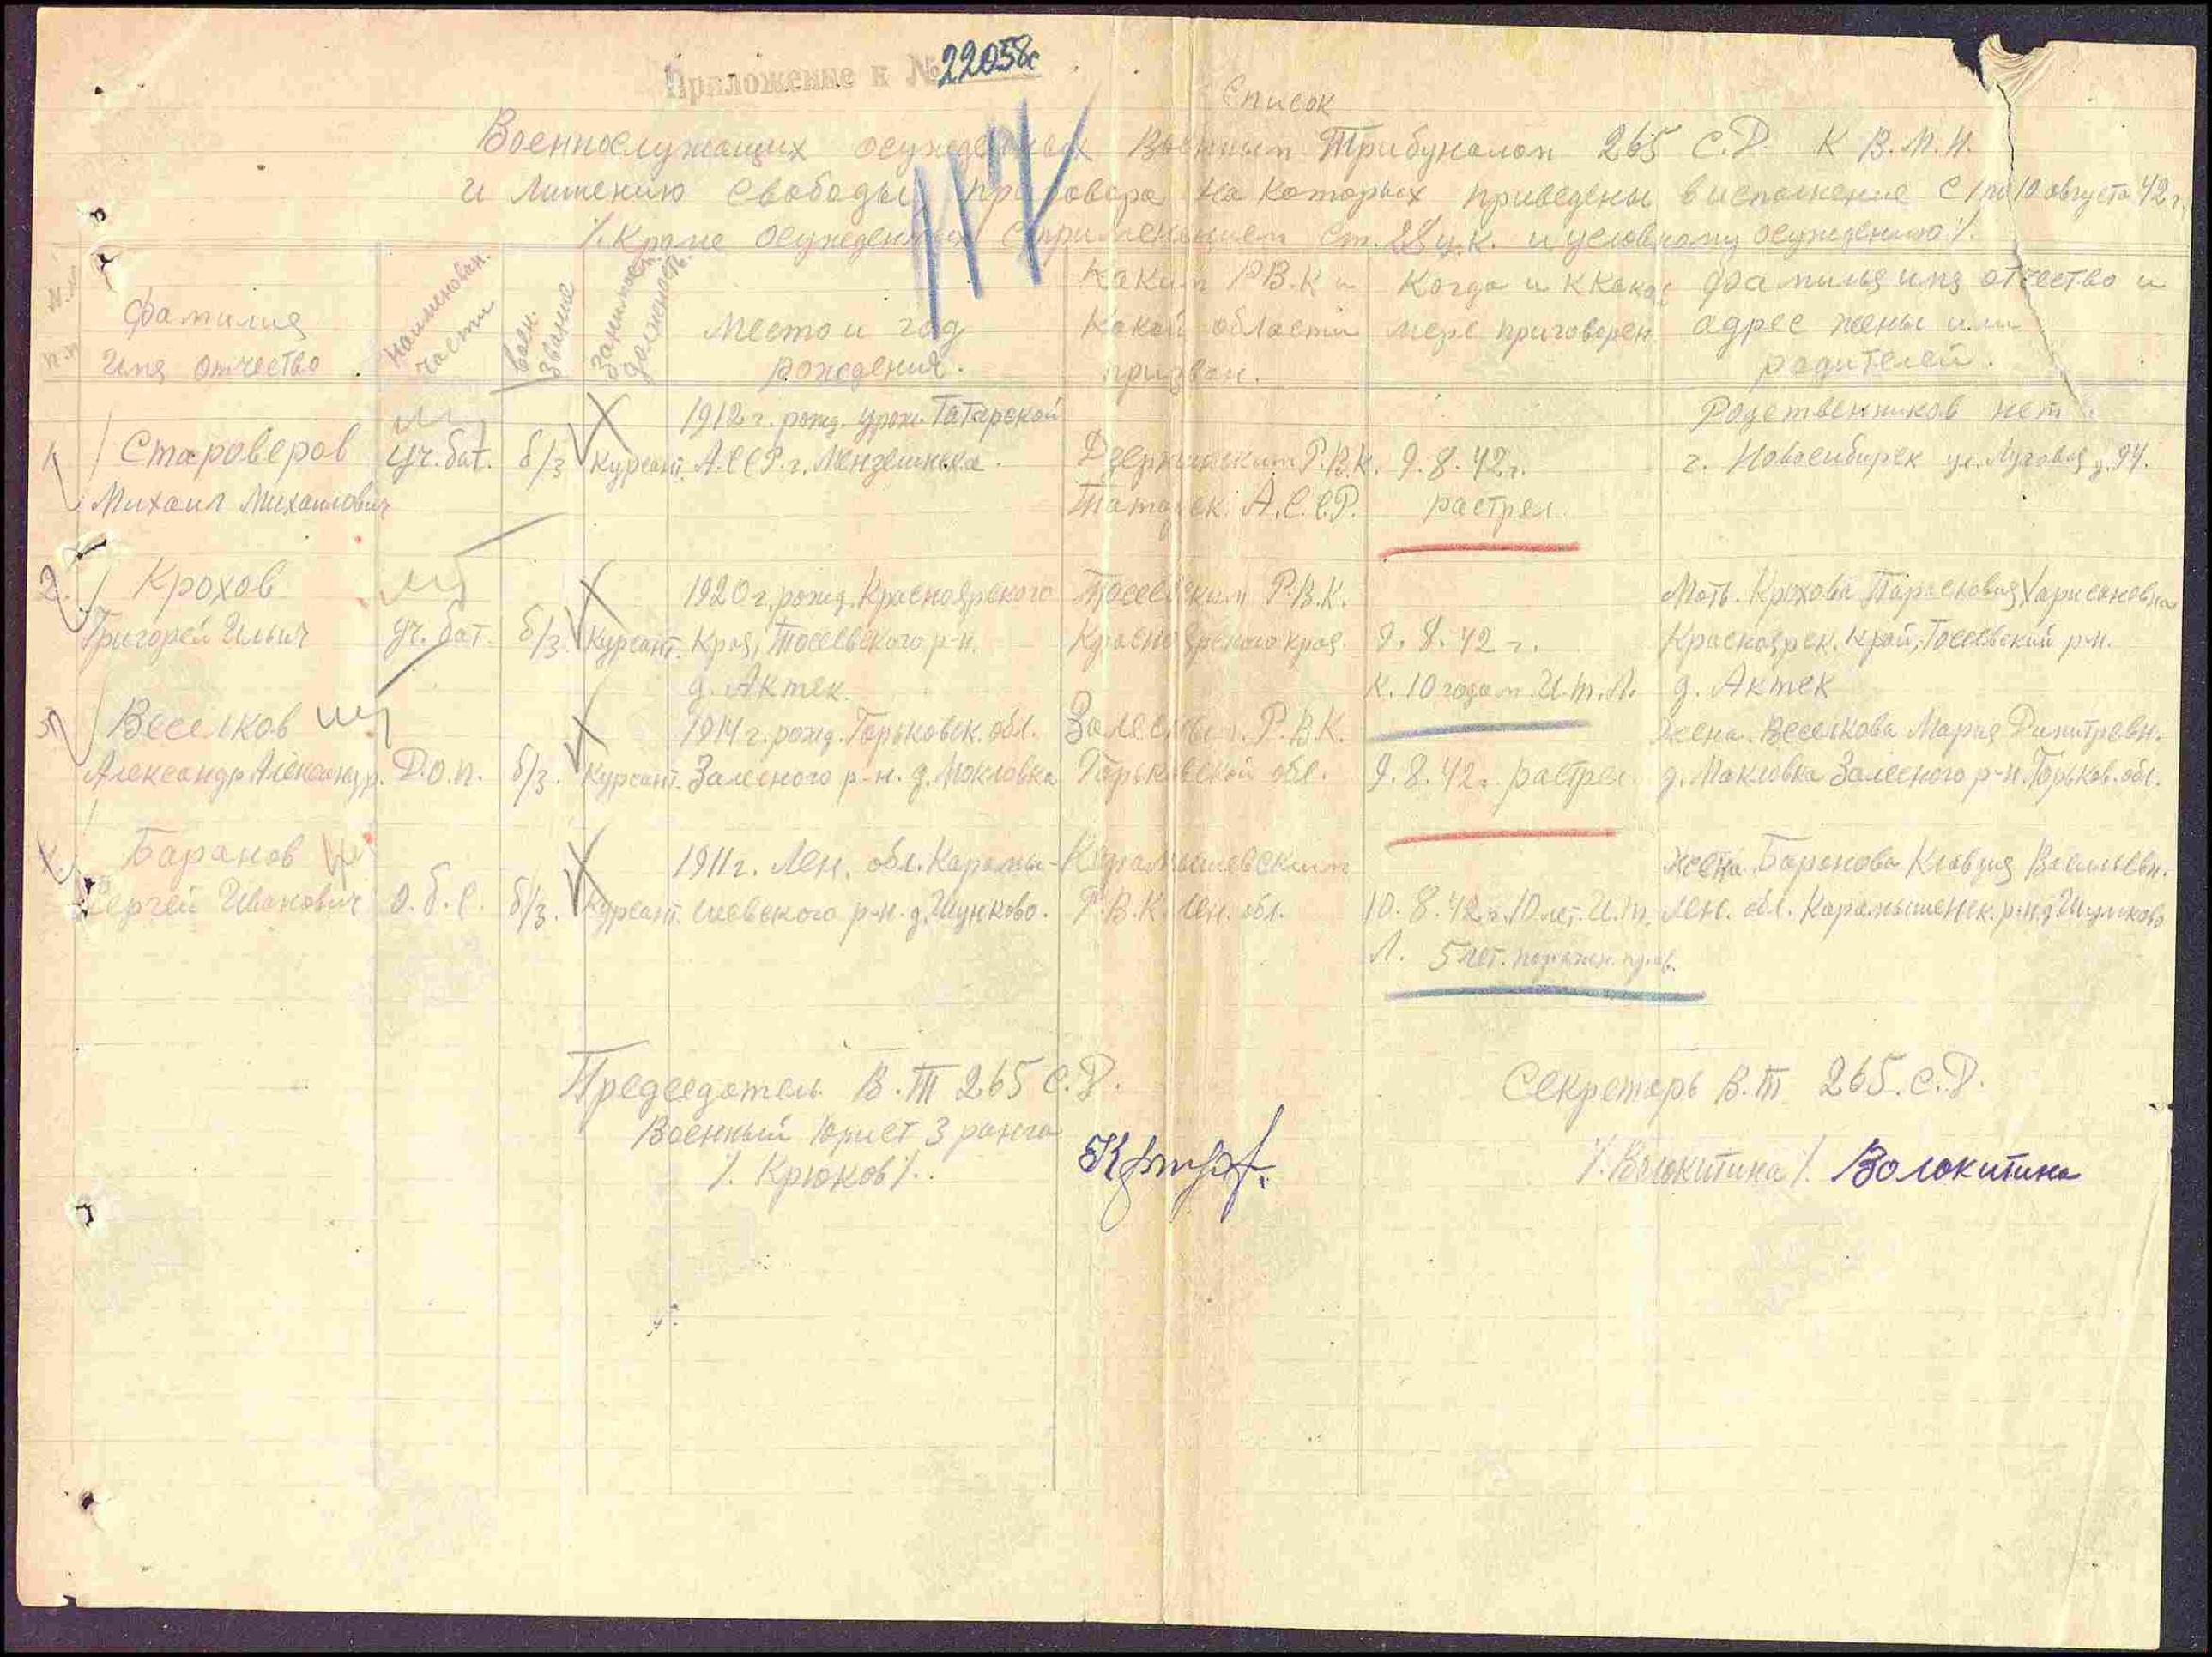 Приложение к № 22058с
Список
Военнослужащих осужденных Военным Трибуналом 265 С.Д. К В.М.Н.
и лишению свободы, приговора на которых приведены в исполнение с 1 по 10 августа 42 г.
/. Кроме осужденных с применением ст. 28 у.к. и условному осуждению /.
N.N п.п
Фамилия
Имя отчество
наименован. части
воен. звание
занимаем. должность.
Место и год
рождения.
Каким Р.В.К и
какой области
призван.
Когда и к какой
мере приговорен
Фамилья имя отчество и
адрес жены или
родителей.
1912 г. рожд. урож. Татарской
Родственников нет.
1 Староверов уч. бат. б/з курсант. А.С.С.Р. г. Мензелинска. Дзержинским Р.В.К. 9.8.42 г. г. Новосибирск ул. Луговая д. 94.
Михаил Михаилович Татарск. А.С.С.Р. растрел.
2. Крохов 1920 г. рожд. Красноярского Тосеевским Р.В.К. Мать. Крохова Парасковия Харисановна
Григорей Ильич уч. бат. б/з. курсант. Края, Тосеевского р-н. Красноярского края. 9.8.42 г. Красноярск. край, Тосеевский р-н.
д. Актек. к. 10 годам И.Т.Л. д. Актек
3 Веселков 1914 г. рожд. Горьковск. обл. Залесным. Р.В.К. Жена. Веселкова Мария Димитревн.
Александр Александр. Д.О.П. б/з. курсант. Залесного р-н. д. Мокловка Горьковской обл. 9.8.42 г. растрел. д. Макловка Залесного р-н. Горьков. обл.
4. Баранов 1911 г. Лен. обл. Карамы- Карамышевским Жена. Баранова Клавдия Васильевн.
Сергей Иванович О.б.с. б/з. курсант. шевского р-н. д. Шунково. Р.В.К. Лен. обл. 10.8.42 г. 10 лет. И.Т. Лен. обл. Карамышенск. р-н д. Шунково
Л. 5 лет. поражен. прав.
Председатель В.Т 265 С.Д. Секретарь В.Т 265. С.Д.
Военный Юрист 3 ранга
/. Крюков /. /. Волокитина /. Волокитина